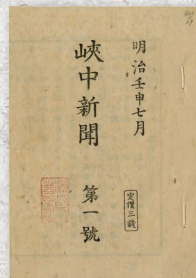 明治壬申七月
峽中新聞 第一號
定價三錢